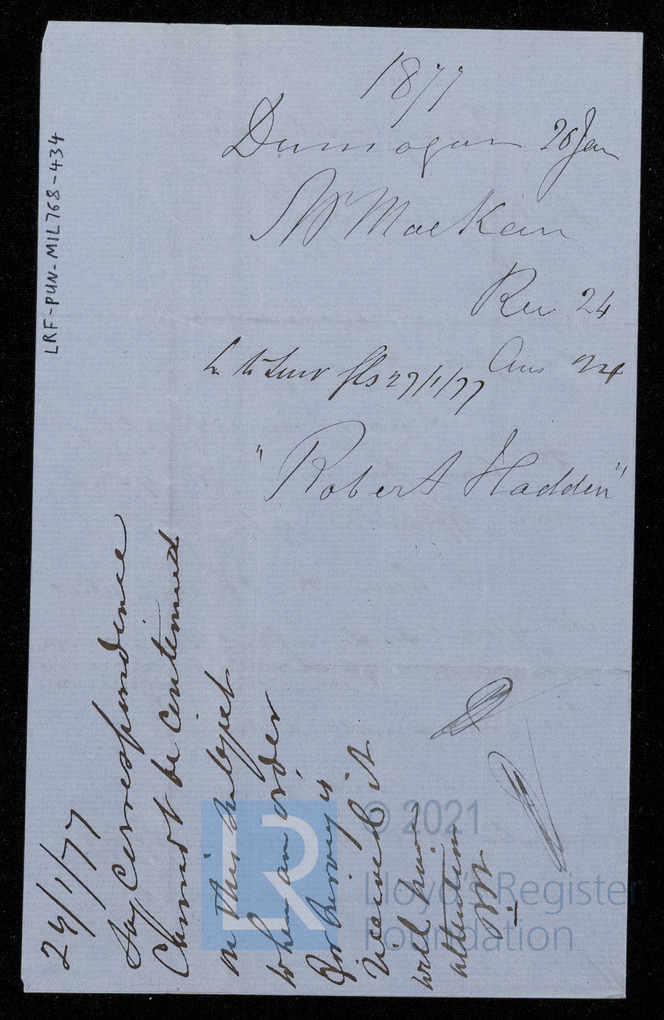 1877
Dumogan 20 Jan
Wm MacKean
Rec 24
Ans 24
L to Surv Gls 27/1/77
"Robert Hadden"
24/1/77
Say Correspondence
Cannot be Continued
on this subject
when an order
for survey is
received it
will have
attention
LRF-PUN-MIL768-434
LR
© 2021
Lloyd's Register
Foundation